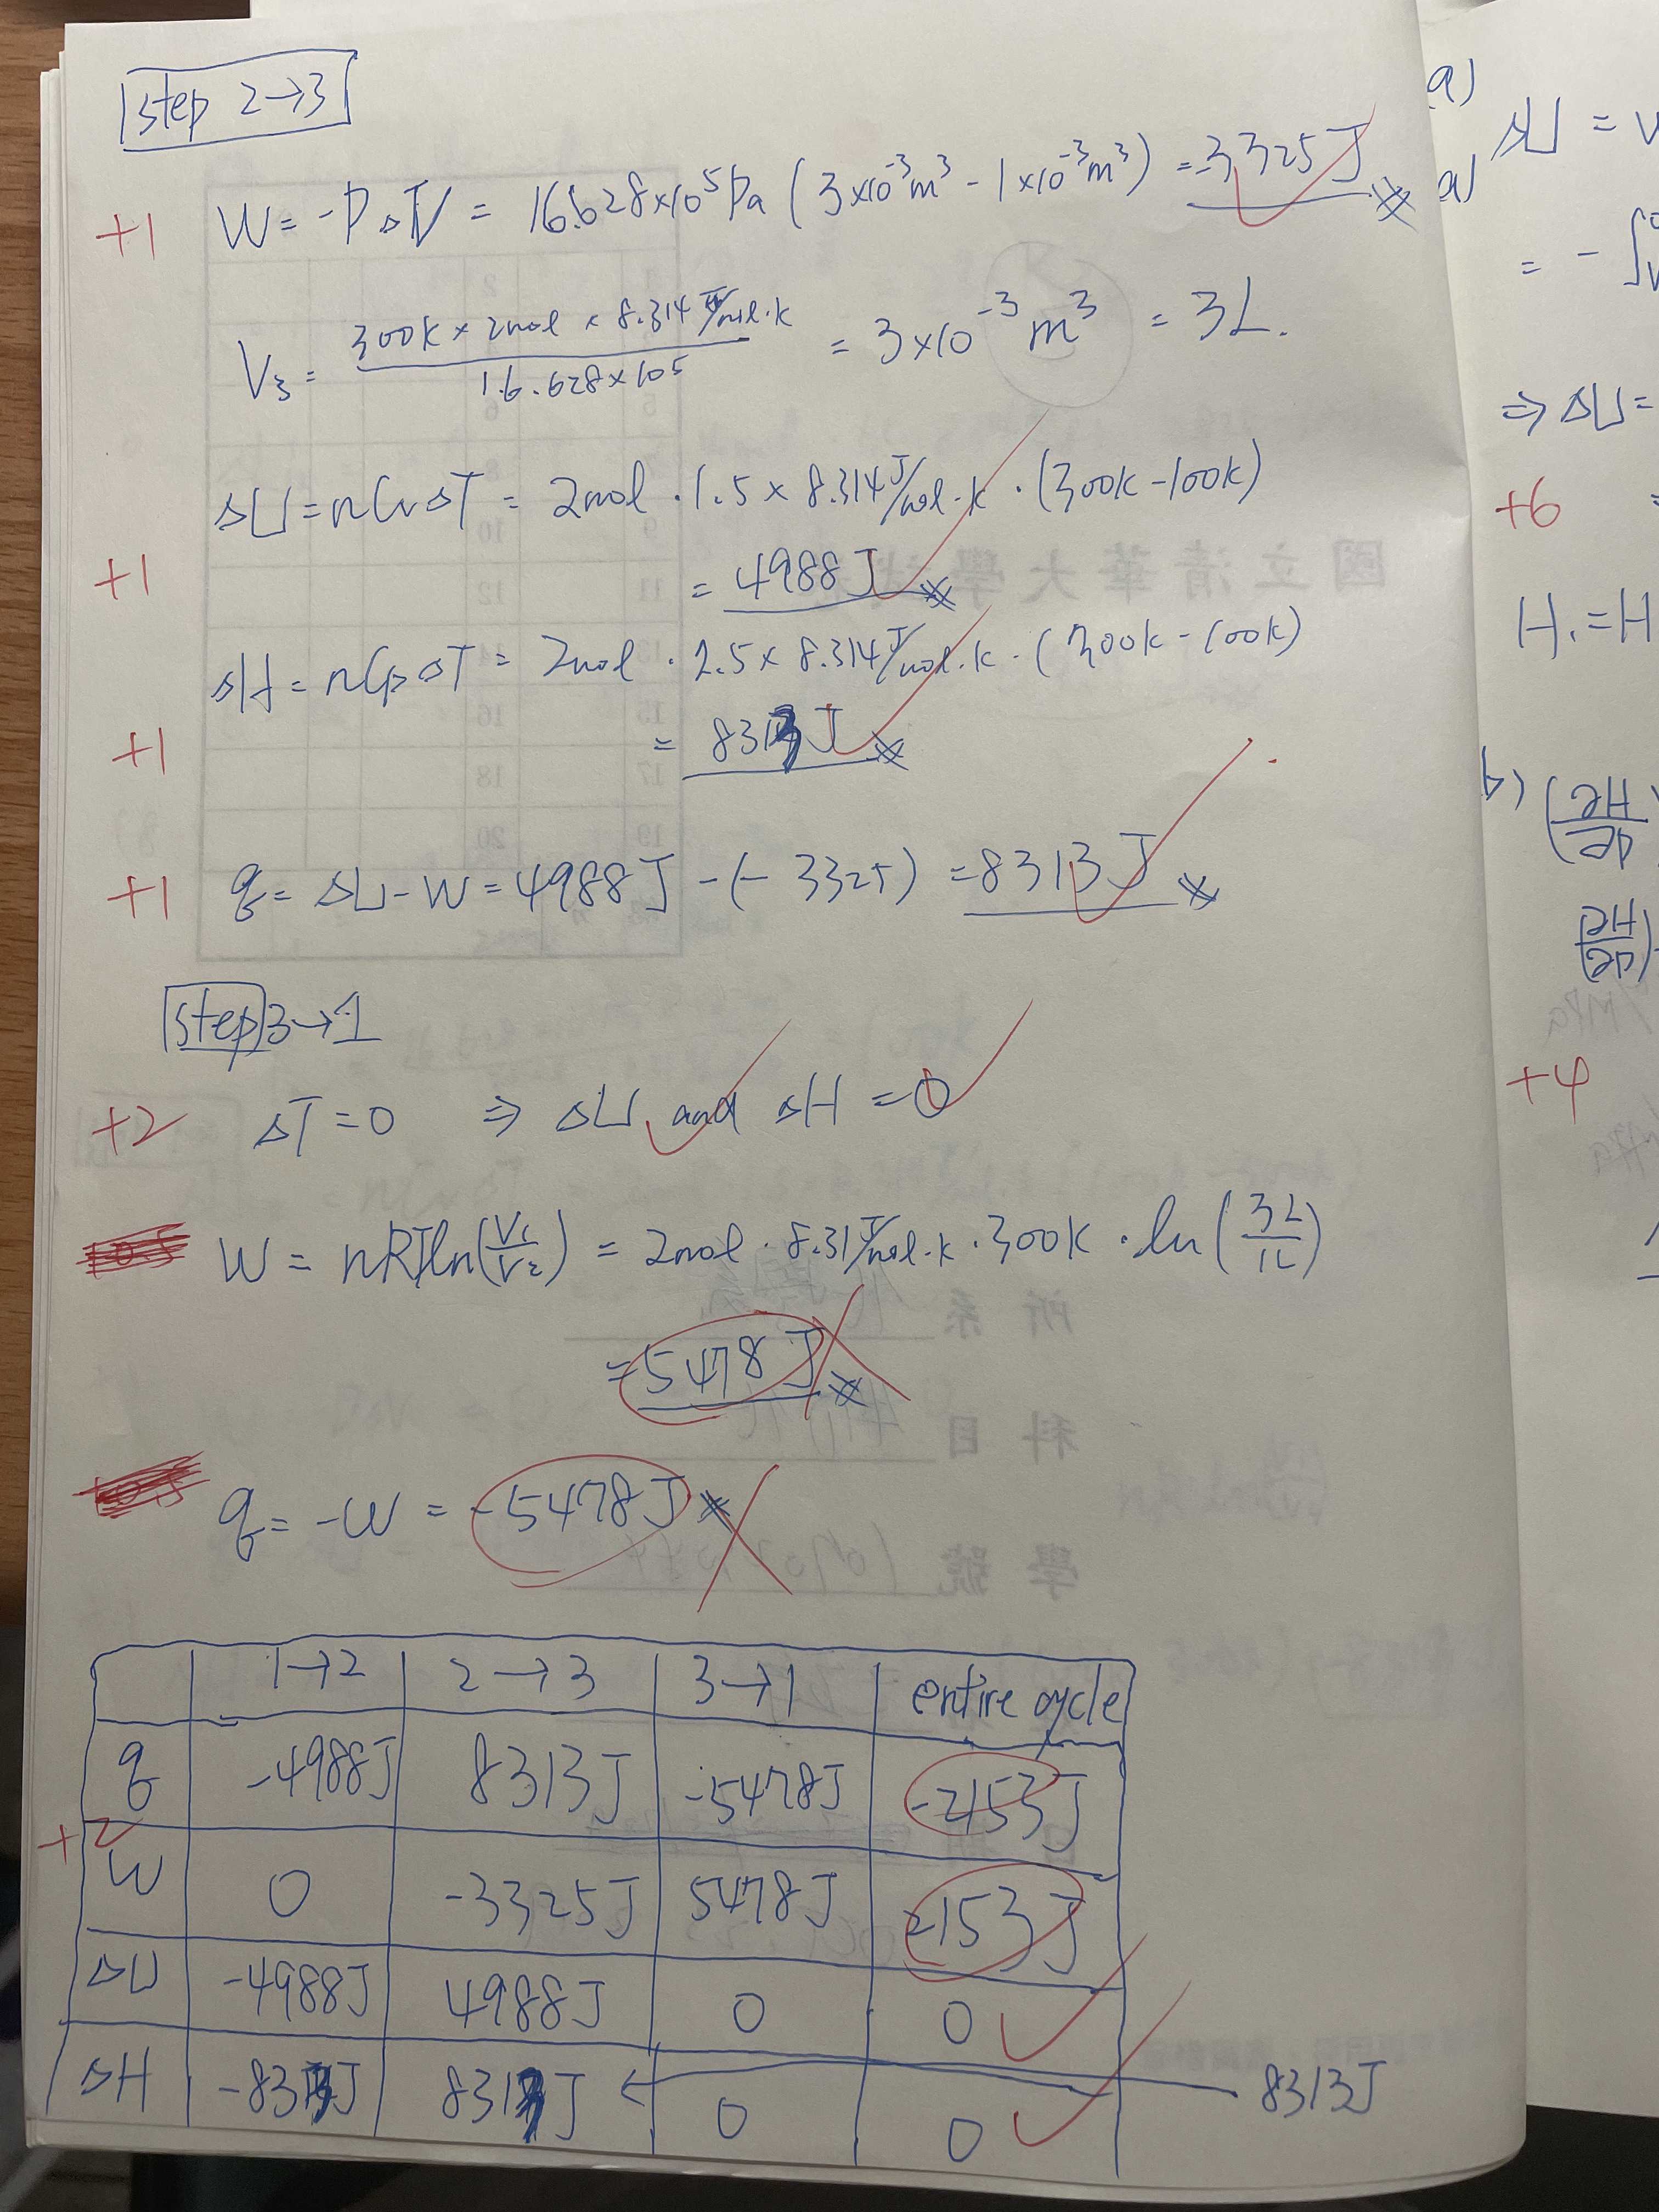 step 2→3
+1 W = -PΔV = 16.628×10⁵Pa (3×10⁻³m³ - 1×10⁻³m³) = -3325J
V₃ = 300K × 2mol × 8.314 J/mol·K / 16.628×10⁵ = 3×10⁻³ m³ = 3L.
ΔU = nCvΔT = 2mol · 1.5 × 8.314 J/mol·K · (300K - 100K)
+1 = 4988J
ΔH = nCpΔT = 2mol · 2.5 × 8.314 J/mol·K · (300K - 100K)
+1 = 8313J
+1 q = ΔU - W = 4988J - (-3325) = 8313J
step 3→1
+2 ΔT = 0 ⇒ ΔU and ΔH = 0
W = nRTln(V₁/V₂) = 2mol · 8.31 J/mol·K · 300K · ln(3L/1L)
= 5478J
q = -W = -5478J
1→2 2→3 3→1 entire cycle
q -4988J 8313J -5478J -2153J
+2
W 0 -3325J 5478J 2153J
ΔU -4988J 4988J 0 0
ΔH -8313J 8313J 0 0
8313J
a)
ΔU =
a)
= - ∫
⇒ ΔU =
+6
H₁ = H
b) (∂H/∂P
(∂H/∂P
+4
國立清華大學
所系
科目
學號